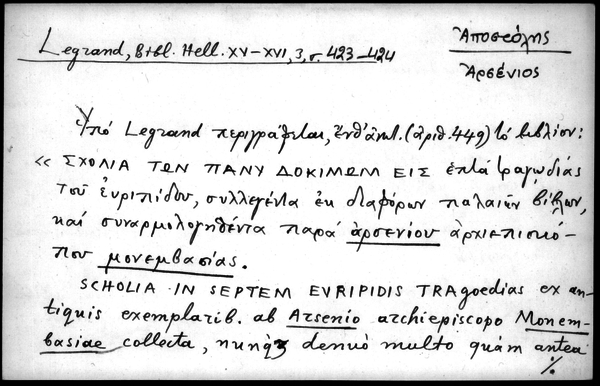 Legrand, Bibl. Hell. XV–XVI, 3, σ. 423–424
Ἀποστόλης
Ἀρσένιος
Ὑπό Legrand περιγράφεται, ἔνθ' ἀνωτ. (ἀριθ. 449) τό βιβλίον:
« ΣΧΟΛΙΑ ΤΩΝ ΠΑΝΥ ΔΟΚΙΜΩΝ ΕΙΣ ἑπτά τραγῳδίας
τοῦ Εὐριπίδου, συλλεγέντα ἐκ διαφόρων παλαιῶν βίβλων,
καί συναρμολογηθέντα παρά ἀρσενίου ἀρχιεπισκό-
που μονεμβασίας.
SCHOLIA IN SEPTEM EVRIPIDIS TRAgoedias ex an-
tiquis exemplarib. ab Arsenio archiepiscopo Monem-
basiae collecta, nunqȝ denuò multo quám antea
·/.